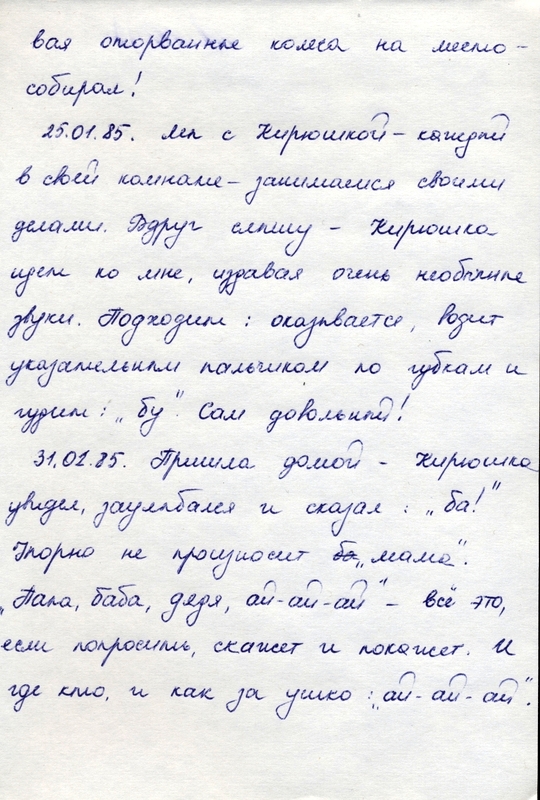 вая оторванные колеса на место -
собирал!
25.01.85. Мы с Кирюшкой - каждый
в своей комнате - занимаемся своими
делами. Вдруг слышу - Кирюшка
идет ко мне, издавая очень необычные
звуки. Подходит: оказывается, водит
указательным пальчиком по губкам и
гудит: „бу". Сам довольный!
31.01.85. Пришла домой - Кирюшка
увидел, заулыбался и сказал: „ба!"
Упорно не произносит ба „мама".
„Папа, баба, дядя, ай-ай-ай" - всё это,
если попросить, скажет и покажет. И
где кто, и как за ушко: „ай-ай-ай".